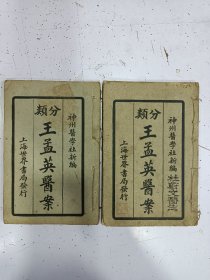 神州醫學社新編
分類
王孟英醫案
上海世界書局發行
神州醫學社新編
分類
王孟英醫案
上海世界書局發行